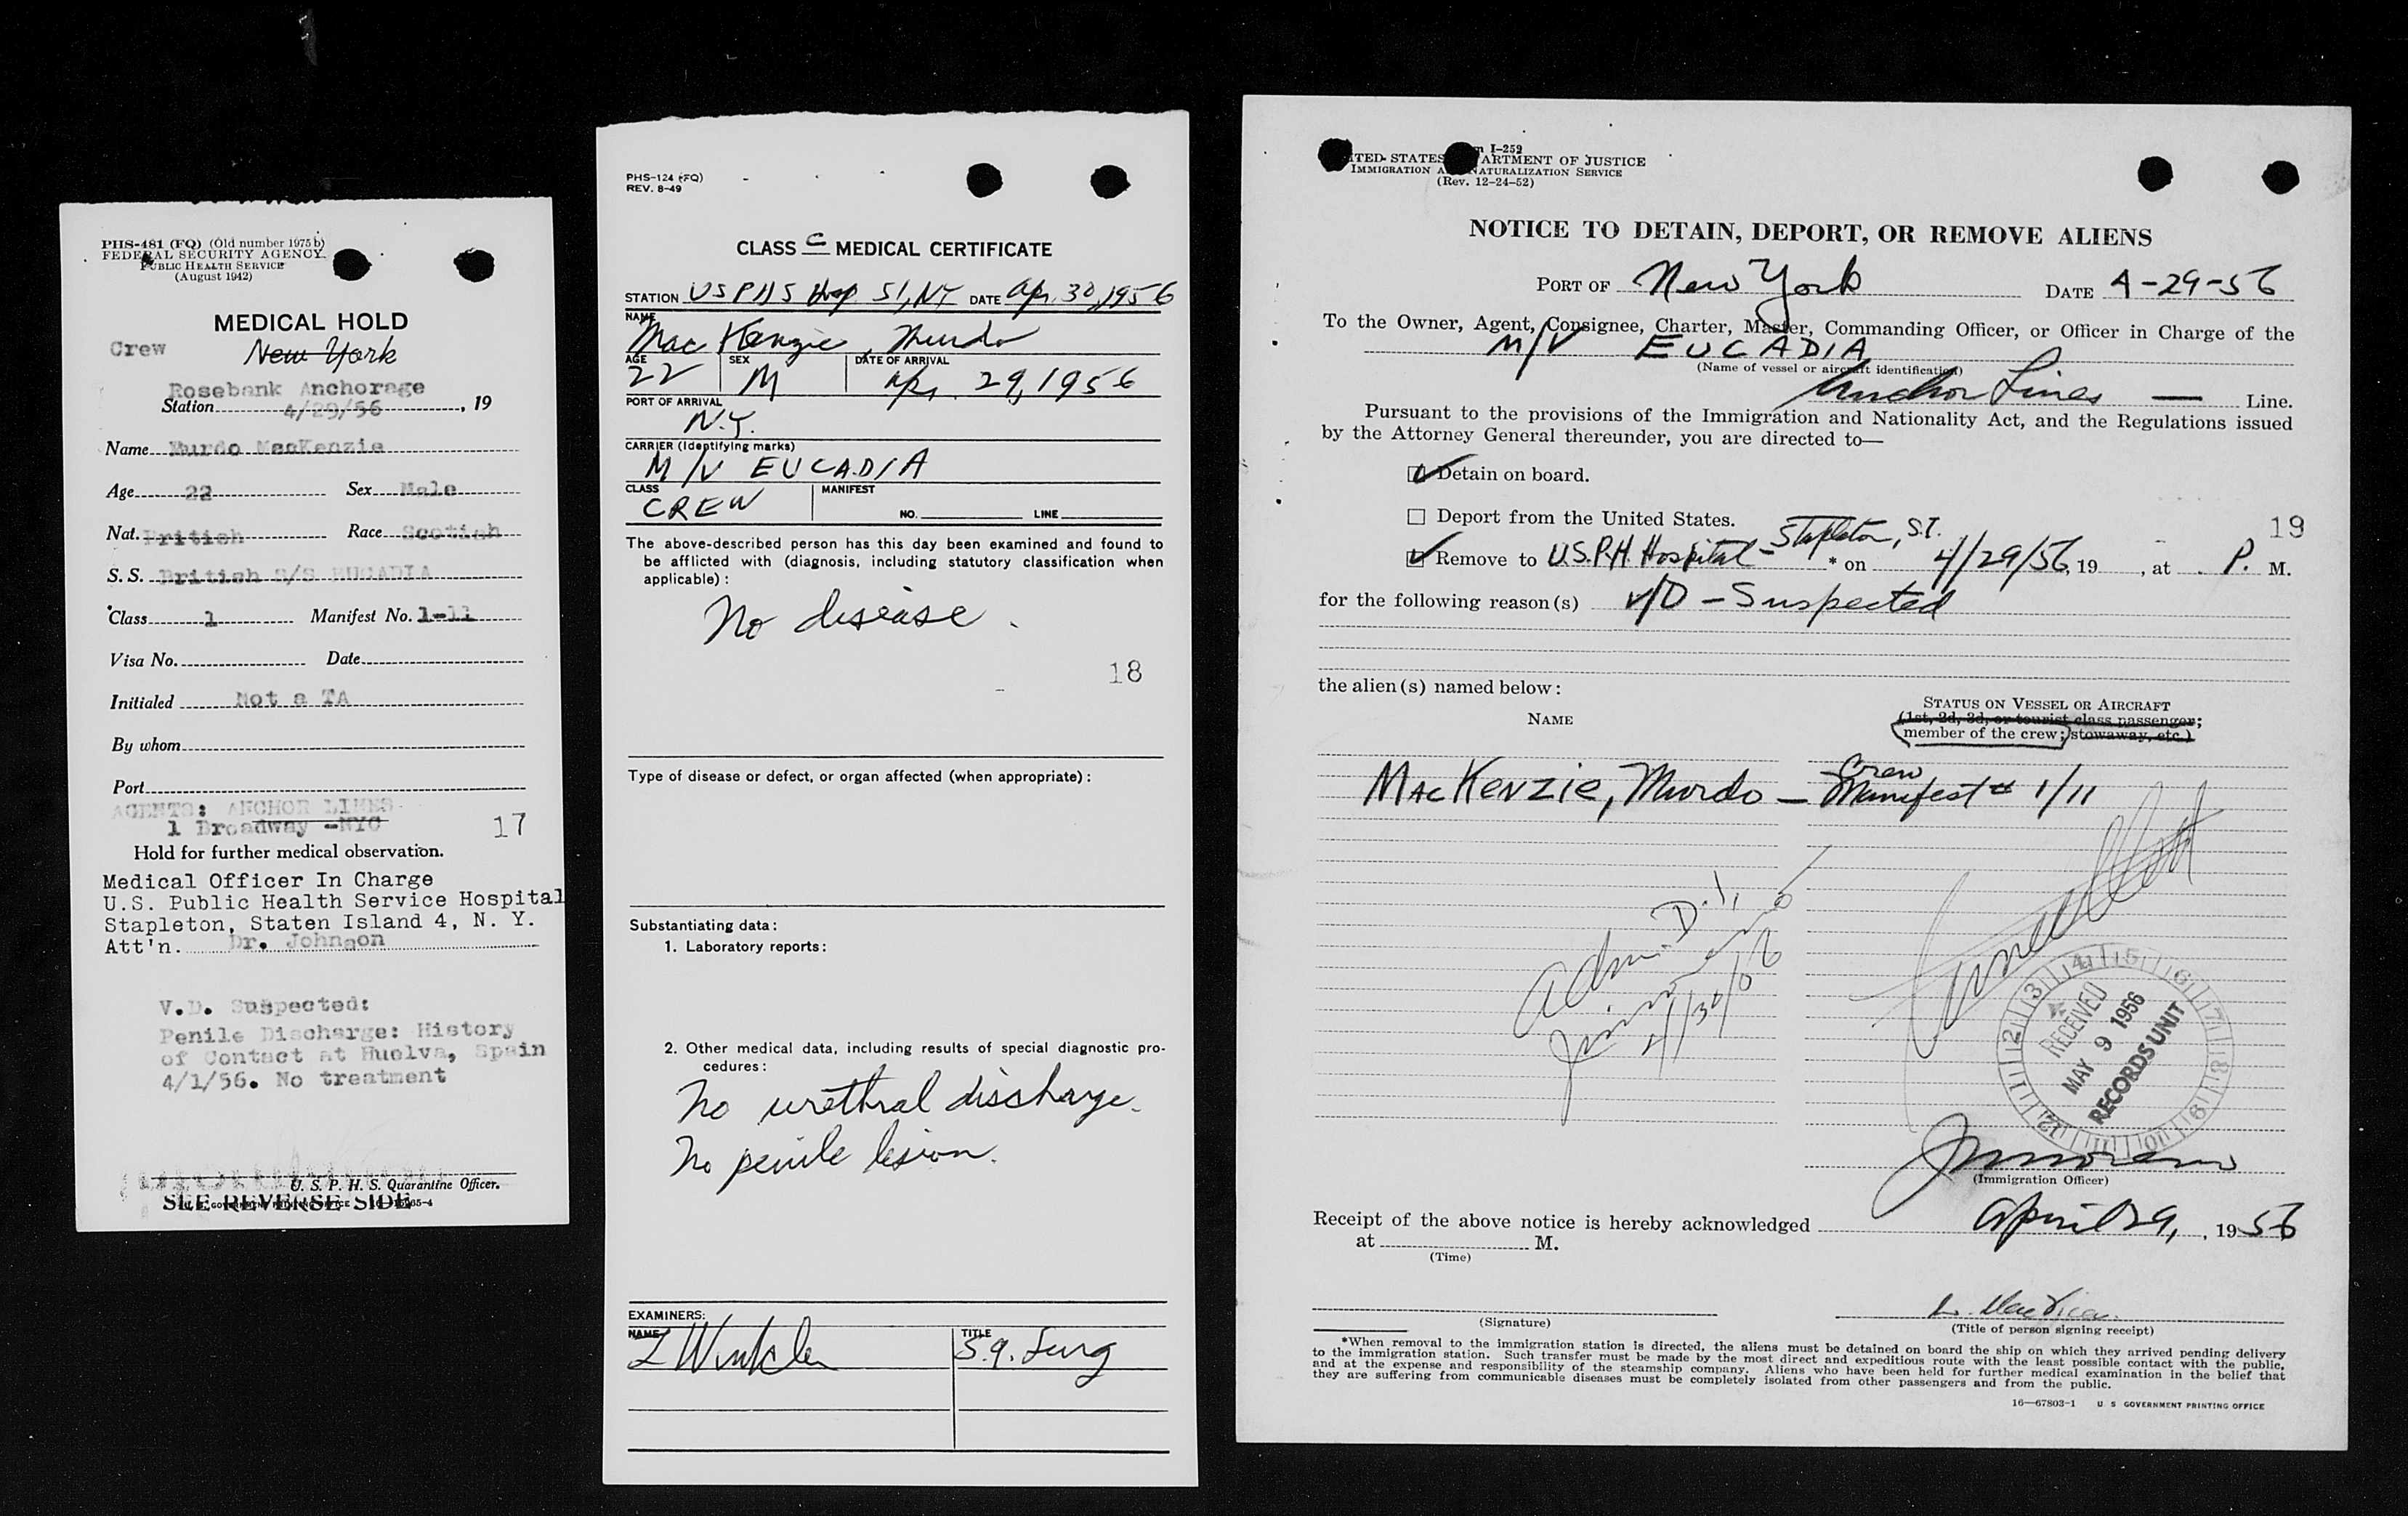 PHS-481 (FQ) (Old number 1975b)
FEDERAL SECURITY AGENCY
PUBLIC HEALTH SERVICE
(August 1942)
MEDICAL HOLD
Crew New York
Rosebank Anchorage
Station 4/29/56, 19
Name Murdo MacKenzie
Age 22 Sex Male
Nat. British Race Scotish
S. S. British S/S EUCADIA
Class 1 Manifest No. 1-11
Visa No. Date
Initialed Not a TA
By whom
Port
AGENTS: ANCHOR LINES
1 Broadway -NYC
17
Hold for further medical observation.
Medical Officer In Charge
U.S. Public Health Service Hospital
Stapleton, Staten Island 4, N. Y.
Att'n. Dr. Johnson
V.D. Suspected:
Penile Discharge: History
of Contact at Huelva, Spain
4/1/56. No treatment
U. S. P. H. S. Quarantine Officer.
SEE REVERSE SIDE
PHS-124 (FQ)
REV. 8-49
CLASS C MEDICAL CERTIFICATE
STATION USPHS Hosp. SI, NY DATE Apr. 30, 1956
NAME
MacKenzie, Murdo
AGE SEX DATE OF ARRIVAL
22 M Apr. 29, 1956
PORT OF ARRIVAL
N.Y.
CARRIER (Identifying marks)
M/V EUCADIA
CLASS MANIFEST
CREW NO. LINE
The above-described person has this day been examined and found to
be afflicted with (diagnosis, including statutory classification when
applicable):
No disease.
18
Type of disease or defect, or organ affected (when appropriate):
Substantiating data:
1. Laboratory reports:
2. Other medical data, including results of special diagnostic pro-
cedures:
No urethral discharge.
No penile lesion.
EXAMINERS:
NAME TITLE
L Winkler S.A. Surg
I-259
UNITED STATES DEPARTMENT OF JUSTICE
IMMIGRATION AND NATURALIZATION SERVICE
(Rev. 12-24-52)
NOTICE TO DETAIN, DEPORT, OR REMOVE ALIENS
PORT OF New York DATE 4-29-56
To the Owner, Agent, Consignee, Charter, Master, Commanding Officer, or Officer in Charge of the
M/V EUCADIA
(Name of vessel or aircraft identification)
Anchor Lines — Line.
Pursuant to the provisions of the Immigration and Nationality Act, and the Regulations issued
by the Attorney General thereunder, you are directed to—
Detain on board.
Deport from the United States.
19
Remove to U.S.P.H. Hospital - Stapleton, S.I. * on 4/29/56, 19 , at P. M.
for the following reason(s) V/D - Suspected
the alien(s) named below:
NAME
STATUS ON VESSEL OR AIRCRAFT
(1st, 2d, 3d, or tourist class passenger;
member of the crew; stowaway, etc.)
MacKenzie, Murdo — Crew Manifest # 1/11
Adm. D.1,
4/30/56
RECEIVED
MAY 9 1956
RECORDS UNIT
(Immigration Officer)
Receipt of the above notice is hereby acknowledged April 29, , 1956
at M.
(Time)
(Signature)
(Title of person signing receipt)
*When removal to the immigration station is directed, the aliens must be detained on board the ship on which they arrived pending delivery
to the immigration station. Such transfer must be made by the most direct and expeditious route with the least possible contact with the public,
and at the expense and responsibility of the steamship company. Aliens who have been held for further medical examination in the belief that
they are suffering from communicable diseases must be completely isolated from other passengers and from the public.
16—67803-1 U. S. GOVERNMENT PRINTING OFFICE